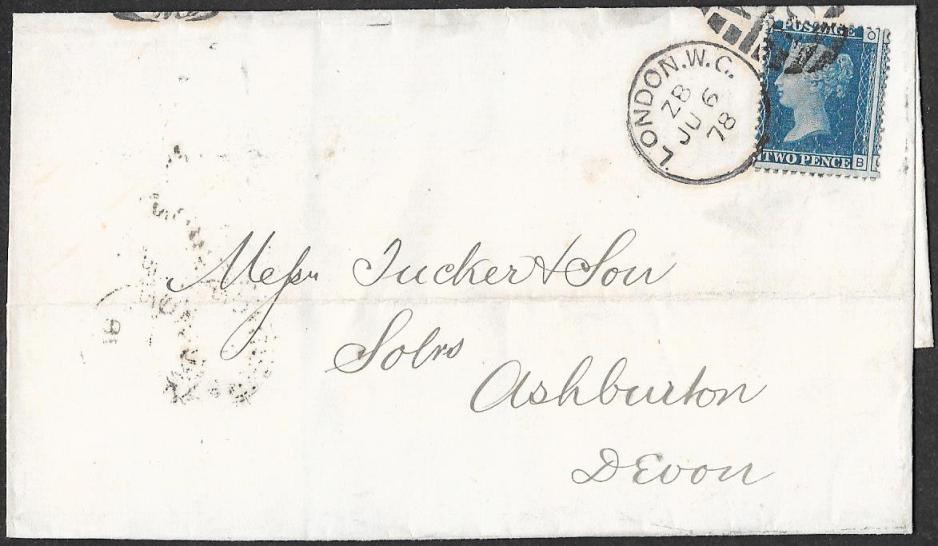 LONDON.W.C.
ZB
JU 6
78
POSTAGE
TWO PENCE
B
Messrs Tucker & Son
Solrs
Ashburton
Devon